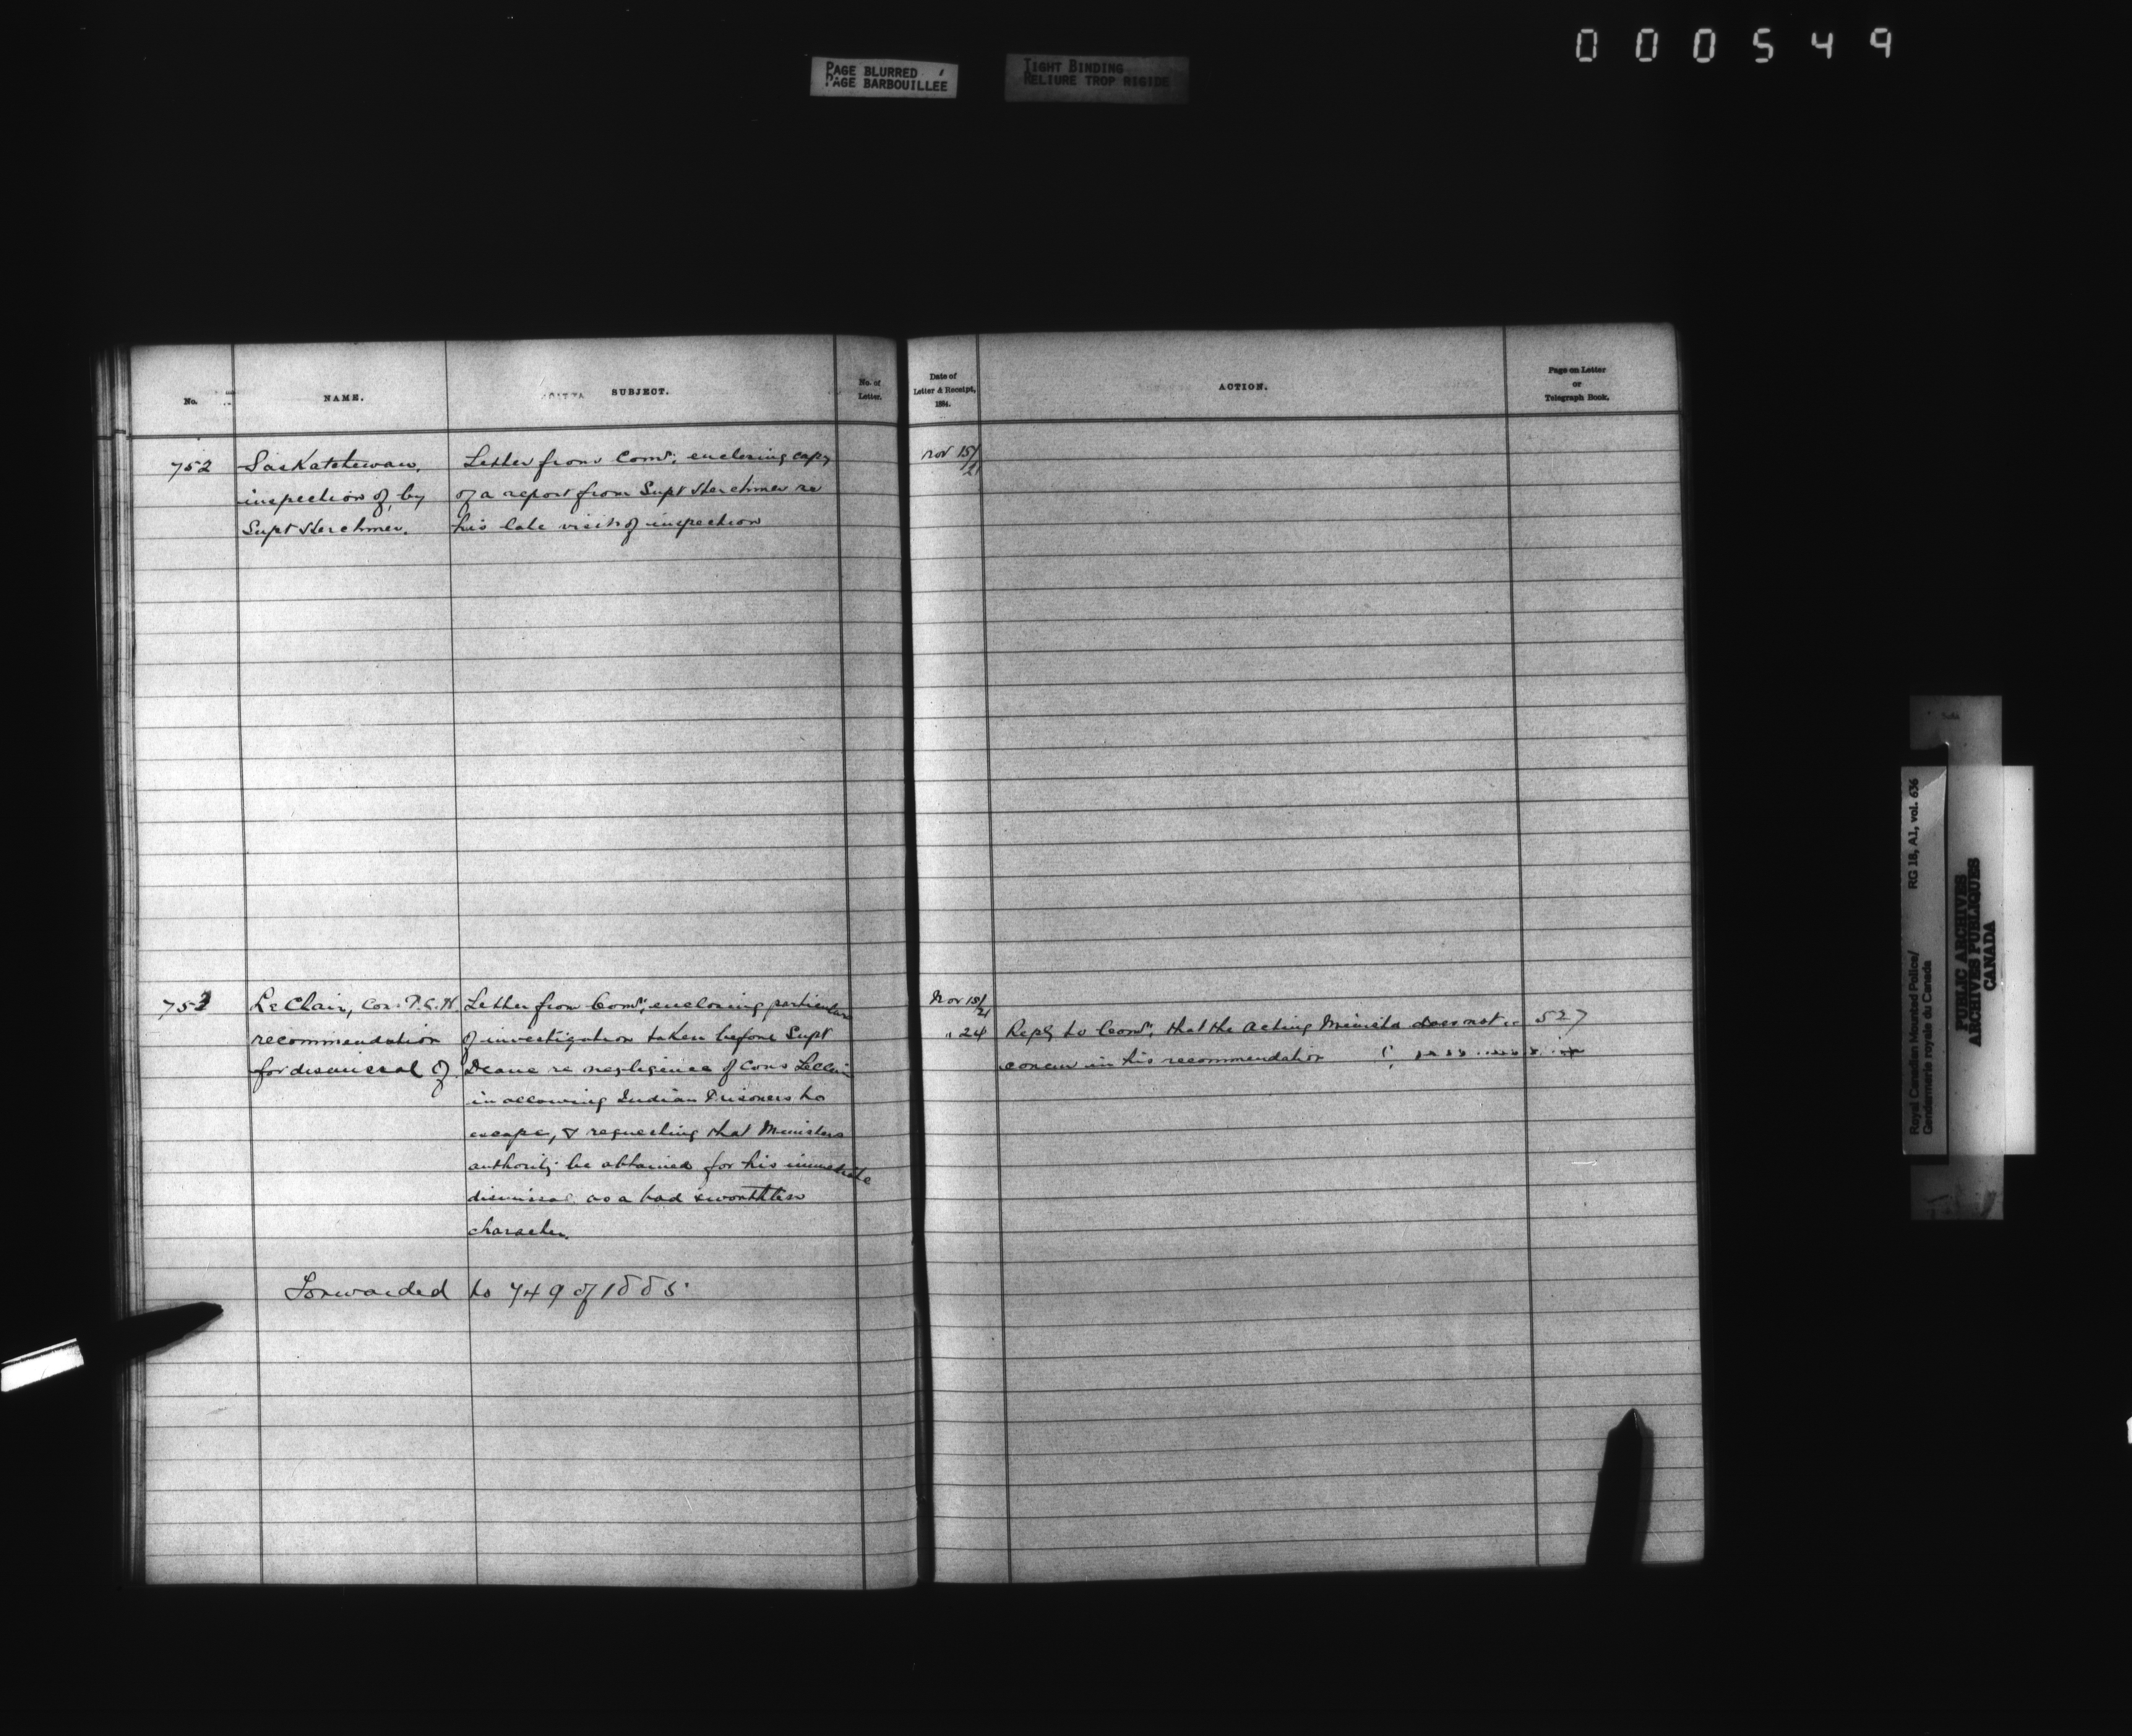 000549
PAGE BLURRED
PAGE BARBOUILLEE
TIGHT BINDING
RELIURE TROP RIGIDE
No.
NAME.
SUBJECT.
No. of
Letter.
Date of
Letter & Receipt,
1884.
ACTION.
Page on Letter
or
Telegraph Book.
752
Saskatchewan,
inspection of, by
Supt Herchmer.
Letter from Comr: enclosing copy
of a report from Supt Herchmer re
his late visit of inspection
Nov 15/21
753
LeClair, Con:
recommendation
for dismissal of
Letter from Comr: enclosing particulars
of investigation taken before Supt
Deane re negligence of Cons LeClair
in allowing Indian Prisoners to
escape, & requesting that Ministers
authority be obtained for his immediate
dismissal as a bad & worthless
character.
Nov 15/21
" 24
Reply to Comr: that the Acting Minister does not
concur in his recommendation
527
Forwarded to 749 of 1885
Royal Canadian Mounted Police/
Gendarmerie royale du Canada
RG 18, A1, vol. 636
PUBLIC ARCHIVES
ARCHIVES PUBLIQUES
CANADA